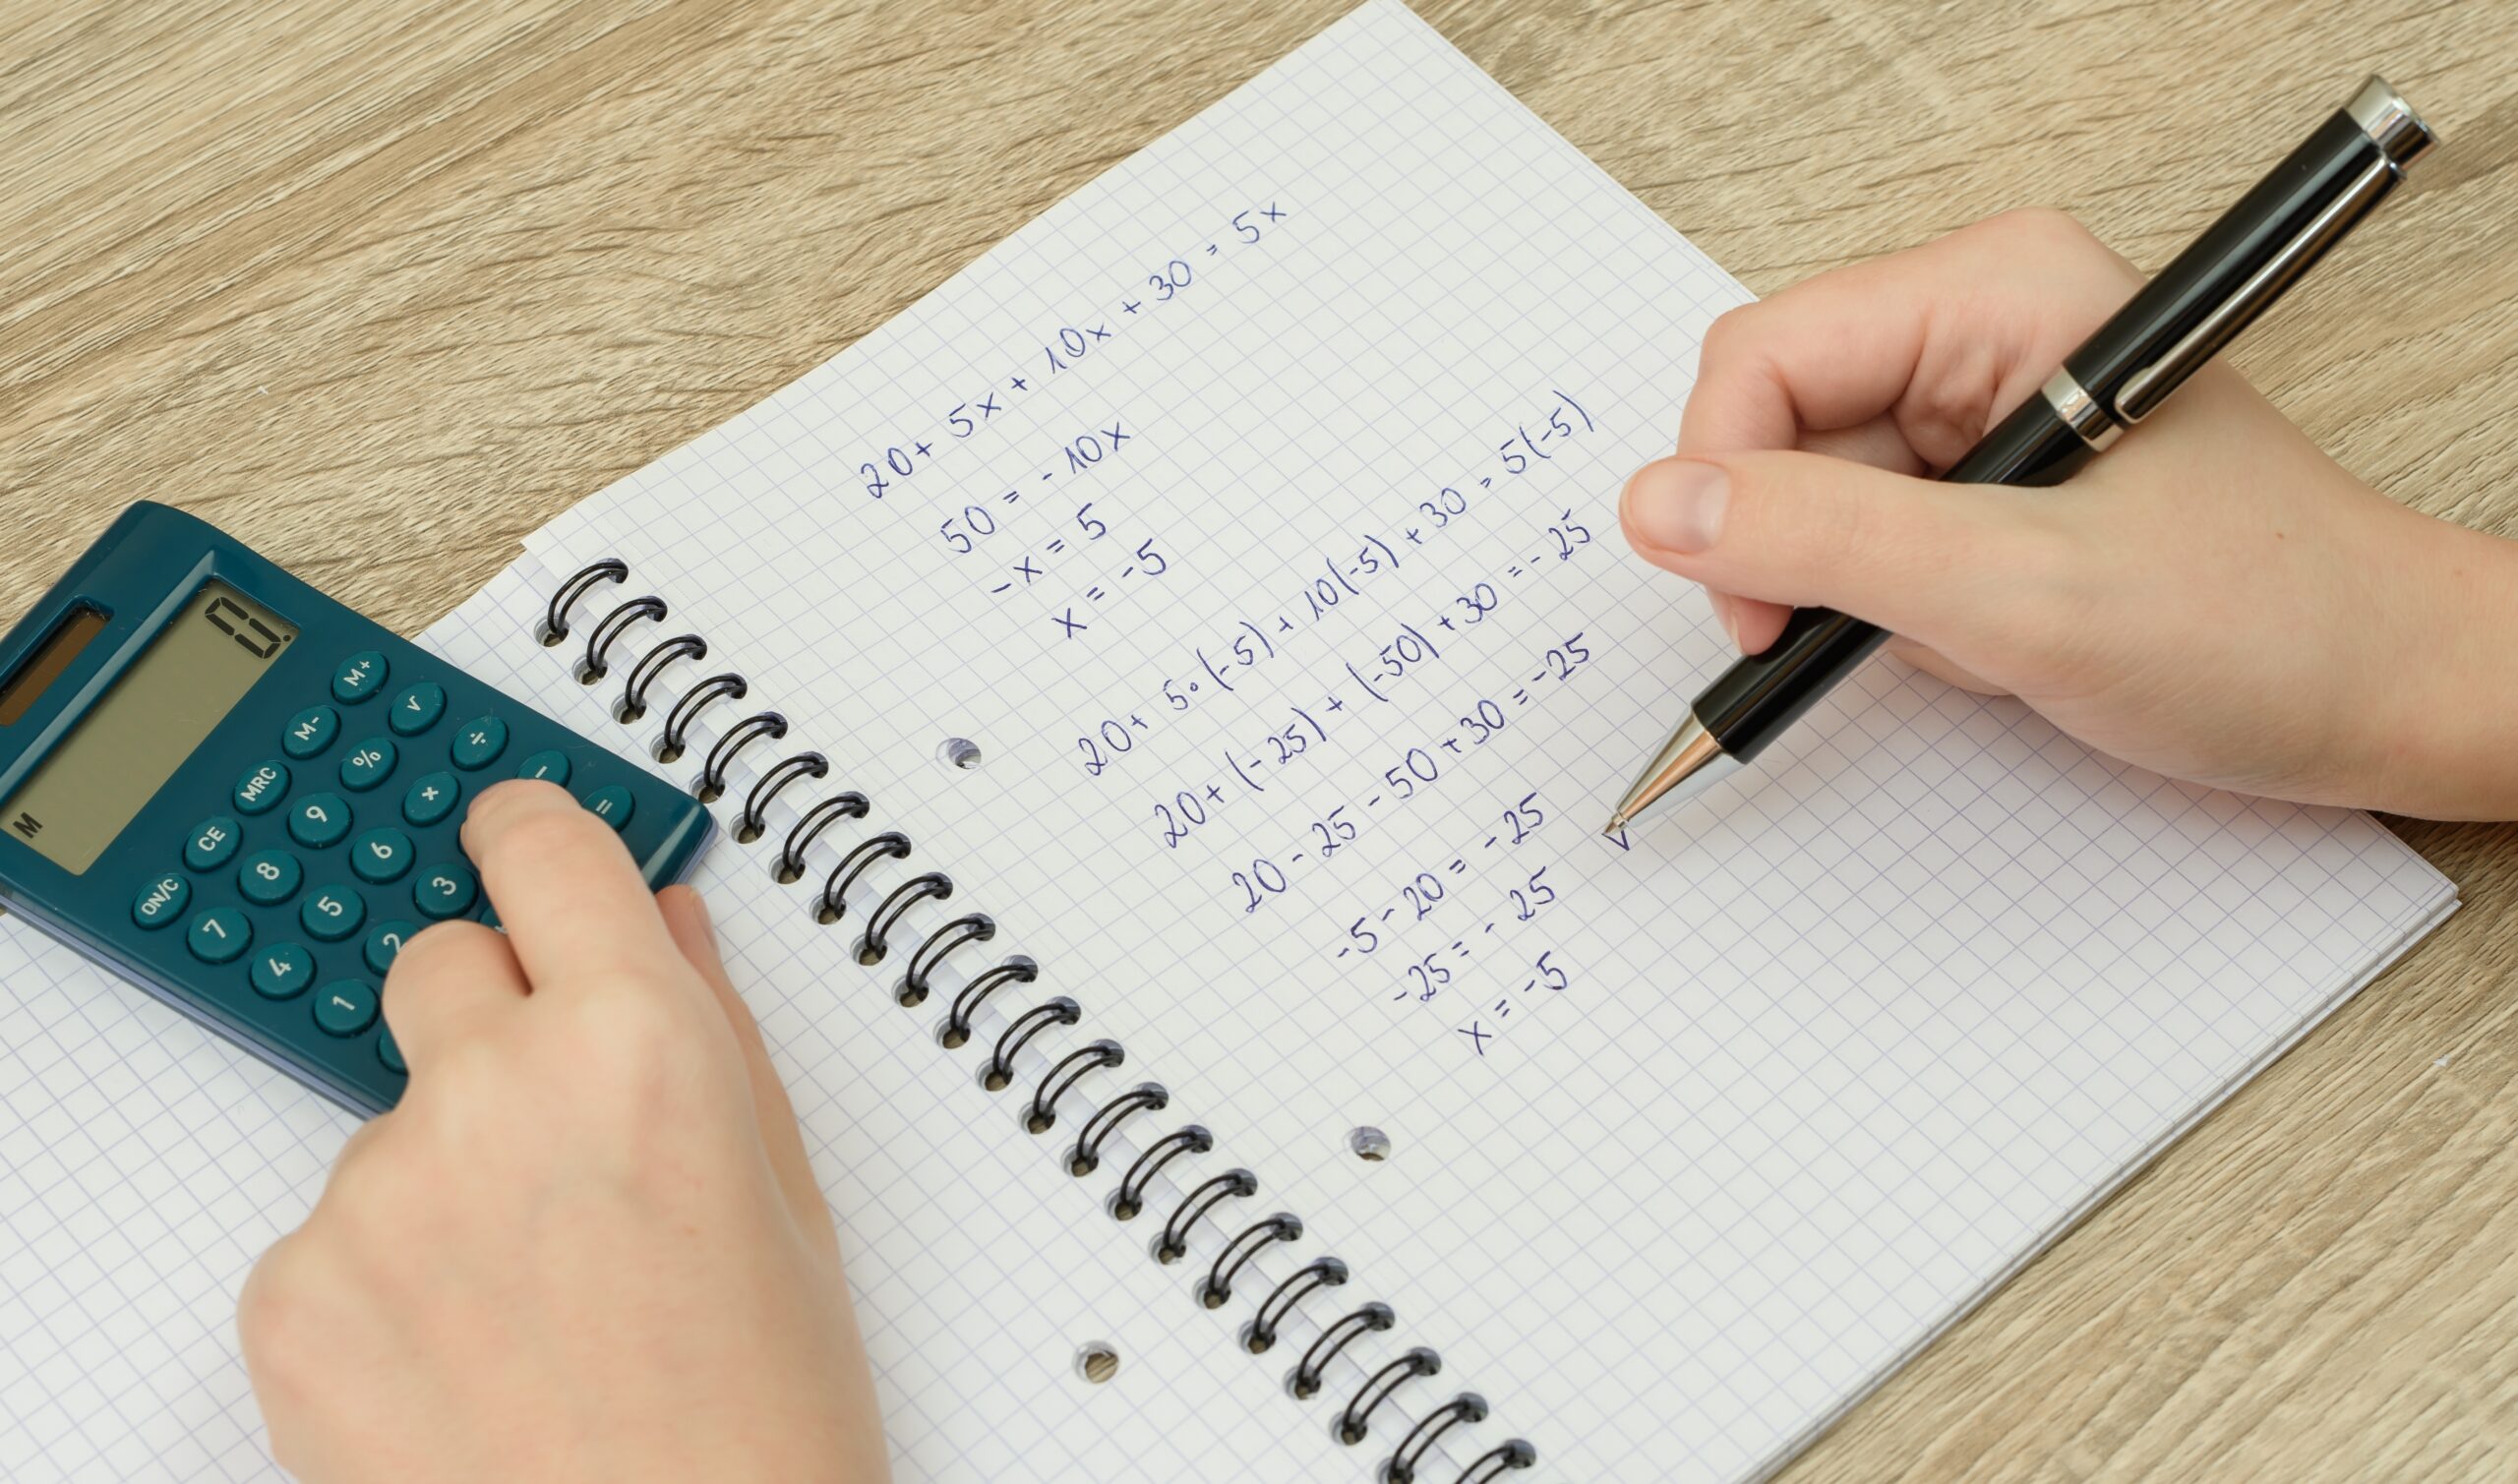 20+ 5x + 10x + 30 = 5x
50 = - 10x
-x = 5
x = -5
20+ 5·(-5) + 10(-5) + 30 = 5(-5)
20+(-25) + (-50) +30 = - 25
20 - 25 - 50 +30 = -25
-5 - 20 = - 25
-25 = - 25
x = -5
0.
M
M+
√
÷
-
=
M-
%
×
MRC
9
6
3
CE
8
5
2
ON/C
7
4
1